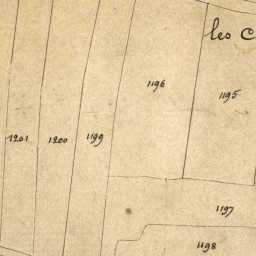 les
1196
1195
1201
1200
1199
1197
1198